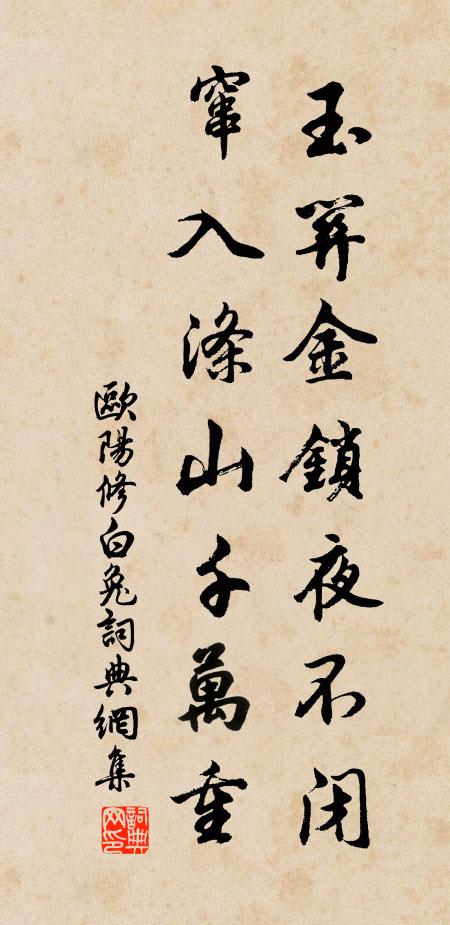 玉關金鎖夜不閉
竄入滁山千萬重
歐陽修白兔詞典網集
詞典网印